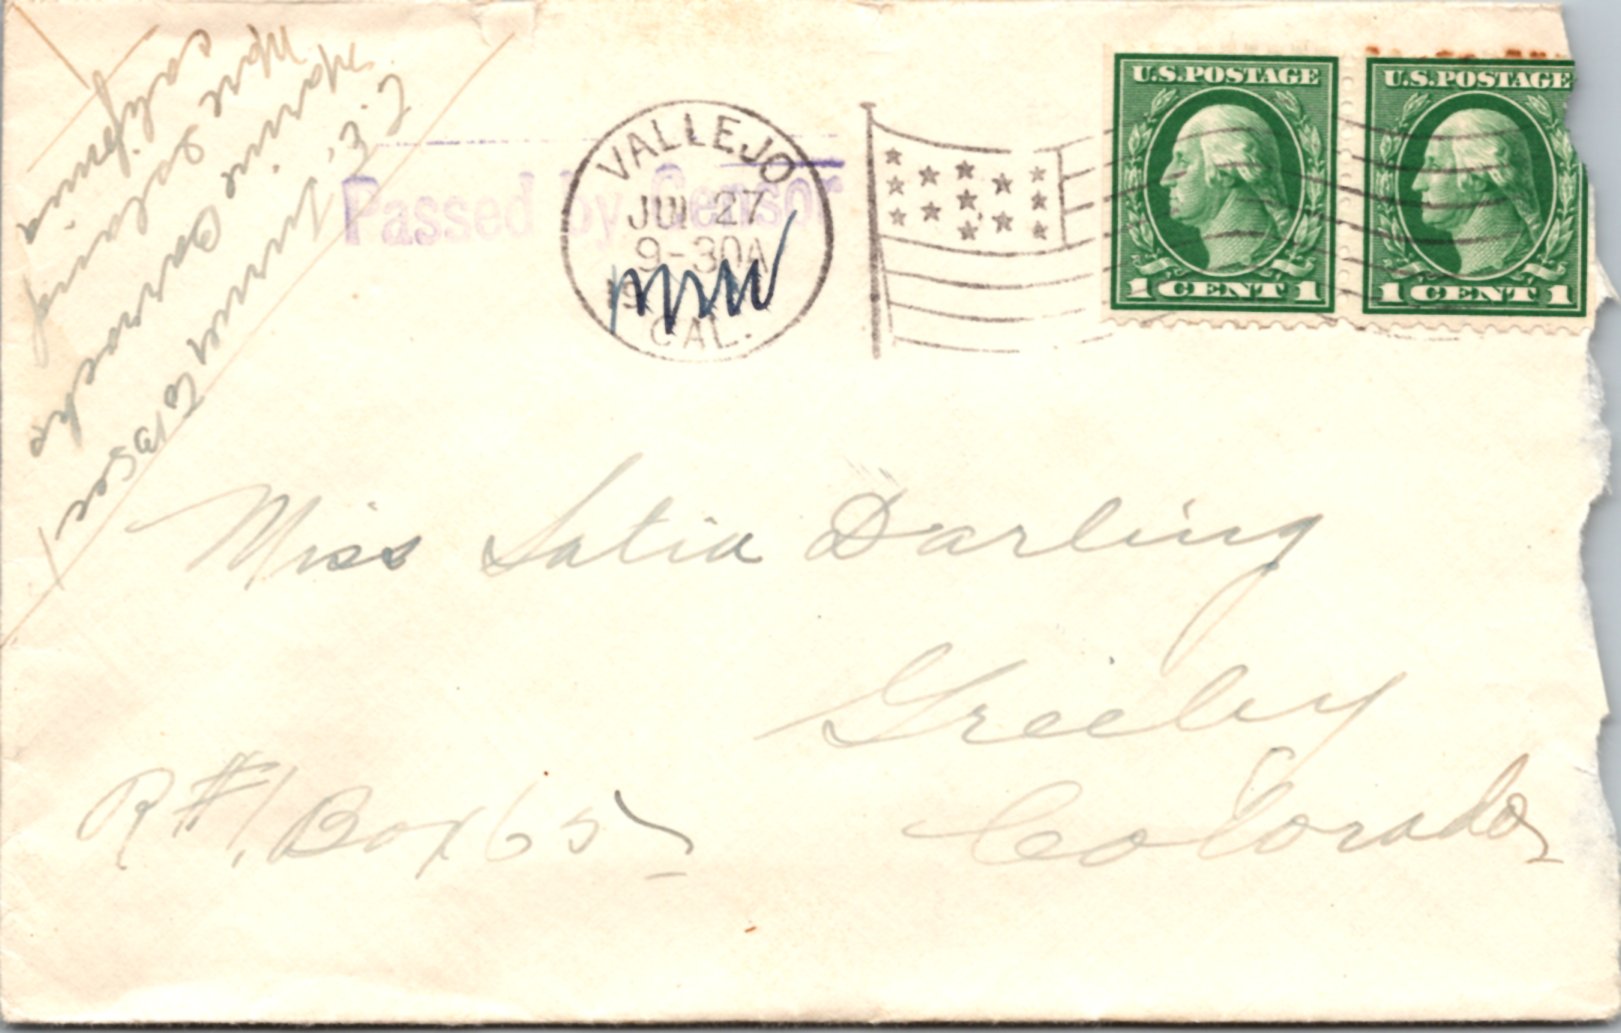 Marine Barracks
Mare Island
California
Passed by Censor
VALLEJO
JUN 27
9-30A
19
CAL.
U.S. POSTAGE
1 CENT 1
U.S. POSTAGE
1 CENT 1
Miss Latia Darling
Greeley
R#1, Box 65
Colorado